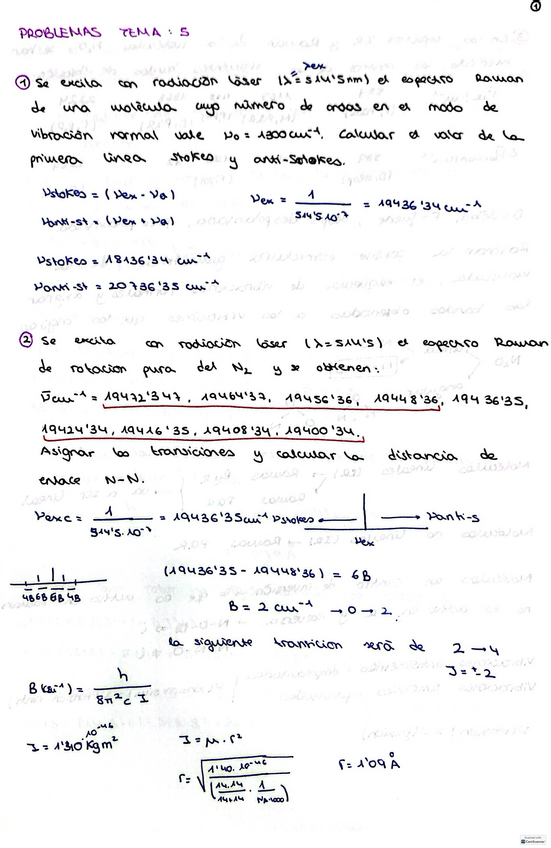 1
PROBLEMAS TEMA: 5
① Se excita con radiación láser (λ = 514'5nm) el espectro Raman
λex
de una molécula cuyo número de ondas en el modo de
vibración normal vale ν0 = 1300cm⁻¹. Calcular el valor de la
primera línea stokes y anti-Sotokes.
νstokes = (νex - νa)
νex = 1 / 514'5·10⁻⁷ = 19436'34 cm⁻¹
νanti-st = (νex + νa)
νstokes = 18136'34 cm⁻¹
νanti-st = 20736'35 cm⁻¹
② Se excita con radiación láser (λ = 514'5) el espectro Raman
de rotación pura del N₂ y se obtienen:
ν̄cm⁻¹ = 19472'347, 19464'37, 19456'36, 19448'36, 19436'35,
19424'34, 19416'35, 19408'34, 19400'34.
Asignar las transiciones y calcular la distancia de
enlace N-N.
νexc = 1 / 514'5·10⁻⁷ = 19436'35cm⁻¹
νstokes νanti-s
νex
(19436'35 - 19448'36) = 6B
4B 6B 6B 4B
B = 2 cm⁻¹ → 0 → 2
la siguiente tranticion será de 2 → 4
J = ± 2
B (cm⁻¹) = h / 8π²c I
I = 1'40·10⁻⁴⁶ Kg m²
I = μ · r²
r = √(1'40·10⁻⁴⁶ / (14·14 / 14+14 · 1 / NA·1000))
r = 1'09 Å
CamScanner